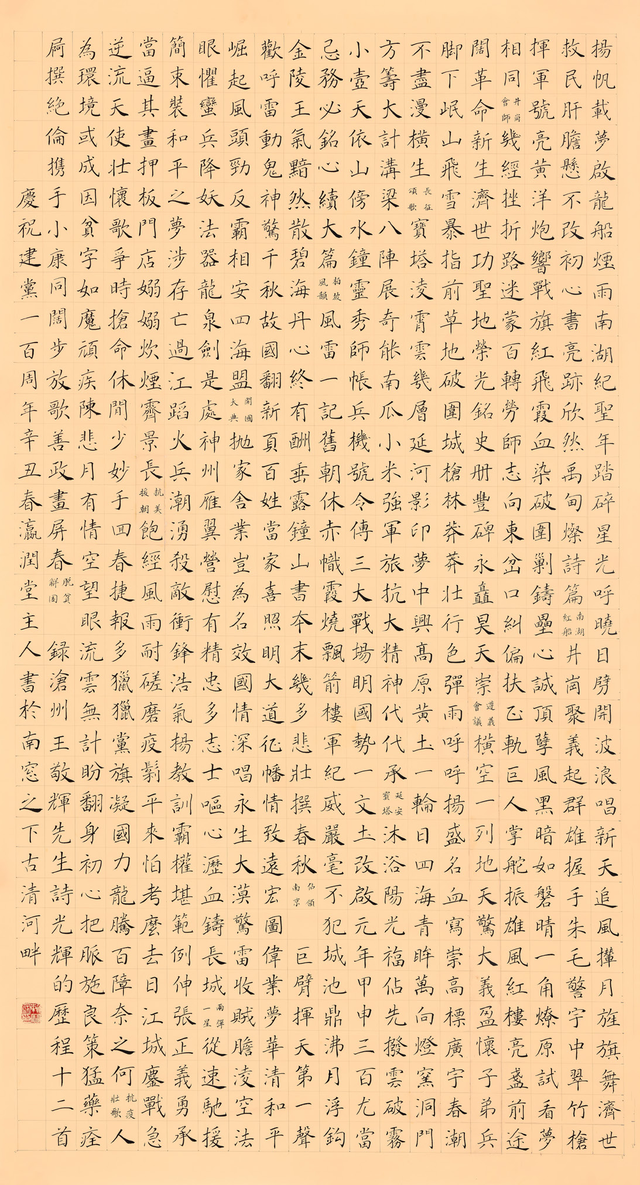 揚帆載夢啟龍船煙雨南湖紀聖年踏碎星光呼曉日劈開波浪唱新天追風攆月旌旗舞濟世
救民肝膽懸不改初心書亮跡欣然禹甸燦詩篇南湖紅船井崗聚義起群雄握手朱毛警宇中翠竹槍
揮軍號亮黃洋炮響戰旗紅飛霞血染破圍剿鑄壘心誠頂孽風黑暗如磐晴一角燎原試看夢
相同井岡會師幾經挫折路迷蒙百轉勞師志向東岔口糾偏扶乙軌巨人掌舵振雄風紅樓亮盞前途
闊革命新生濟世功聖地榮光銘史册豐碑永矗昊天崇遵義會議橫空一列地天驚大義盈懷子弟兵
脚下岷山飛雪暴指前草地破圍城槍林莽莽壯行色彈雨呼呼揚盛名血寫崇高標廣宇春潮
不盡漫橫生長征頌歌寶塔凌霄雲幾層延河影印夢中興高原黃土一輪日四海青眸萬向燈窯洞門
方籌大計溝梁八陣展奇能南瓜小米強軍旅抗大精神代代承延安寶塔沐浴陽光福佔先撥雲破霧
小壺天依山傍水鐘靈秀師帳兵機號令傳三大戰場明國勢一文土改啟元年甲申三百尤當
忌務必銘心續大篇柏坡風韻風雷一記舊朝休赤幟霞燒飄箭樓軍紀威嚴毫不犯城池鼎沸月浮鈎
金陵王氣黯然散碧海丹心終有酬垂露鐘山書本末幾多悲壯撰春秋佔領南京巨臂揮天第一聲
歡呼雷動鬼神驚千秋故國翻新頁百姓當家喜照明大道化幡情致遠宏圖偉業夢華清和平
崛起風頭勁反霸相安四海盟開國大典拋家舍業豈為名效國情深唱永生大漠驚雷收賊膽凌空法
眼懼蠻兵降妖法器龍泉劍是處神州雁翼營慰有精忠多志士嘔心瀝血鑄長城兩彈一星從速馳援
簡束裝和平之夢涉存亡過江蹈火兵潮湧殺敵衝鋒浩氣揚教訓霸權堪範例伸張正義勇承
當逼其畫押板門店嫋嫋炊煙霽景長抗美援朝飽經風雨耐磋磨疫鬁平來怕考麼去日江城鏖戰急
逆流天使壯懷歌爭時搶命休閒少妙手回春捷報多獵獵黨旗凝國力龍騰百障奈之何抗疫壯歌人
為環境或成因貧字如魔頑疾陳悲月有情空望眼流雲無計盼翻身初心把脈施良策猛藥痊
屙撰絕倫携手小康同闊步放歌善政畫屏春脫貧解困錄滄州王敬輝先生詩光輝的歷程十二首
慶祝建黨一百周年辛丑春瀛潤堂主人書於南窓之下古清河畔